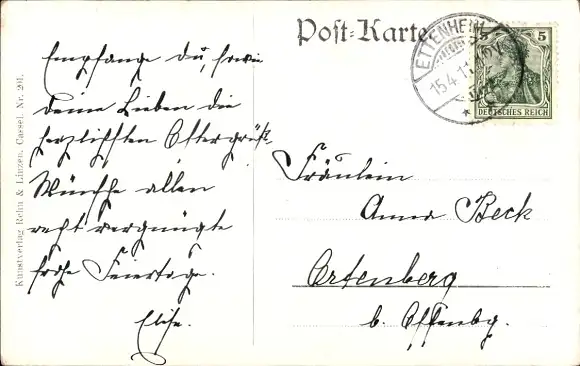 Post-Karte
ETTENHEIM
15.4.11.
5
DEUTSCHES REICH
Empfange du, sowie
deine Lieben die
herzlichsten Ostergrüße.
Wünsche allen
recht vergnügte
frohe Feiertage.
Elise.
Fräulein
Anna Beck
Ortenberg
b. Offenbg.
Kunstverlag Rehn & Linzen, Cassel. Nr. 201.